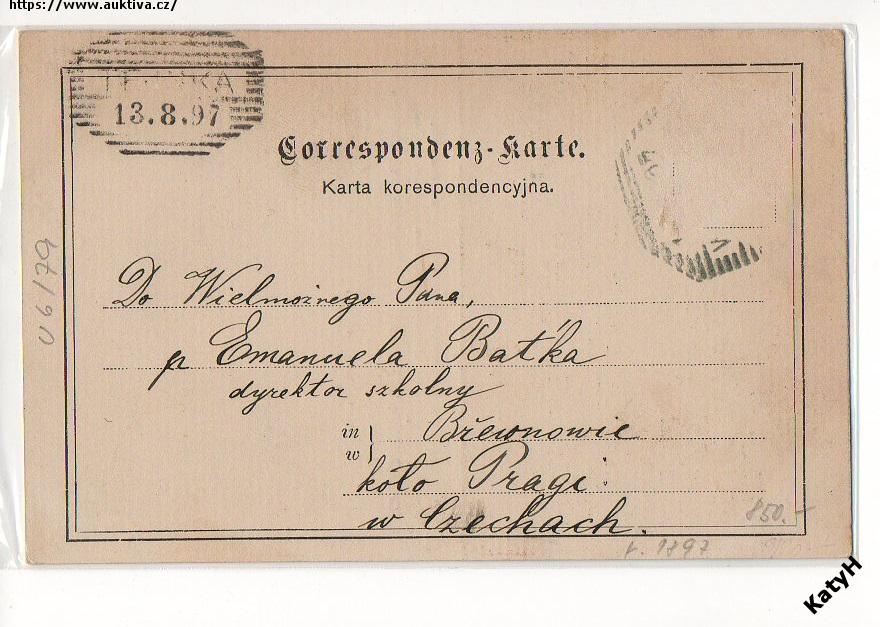 https://www.auktiva.cz/
13.8.97
Correspondenz-Karte.
Karta korespondencyjna.
Do Wielmożnego Pana,
p Emanuela Batʼka
dyrektor szkolny
in } Břewnowie
w
koło Pragi
w Czechach.
850.-
r. 1897
KatyH